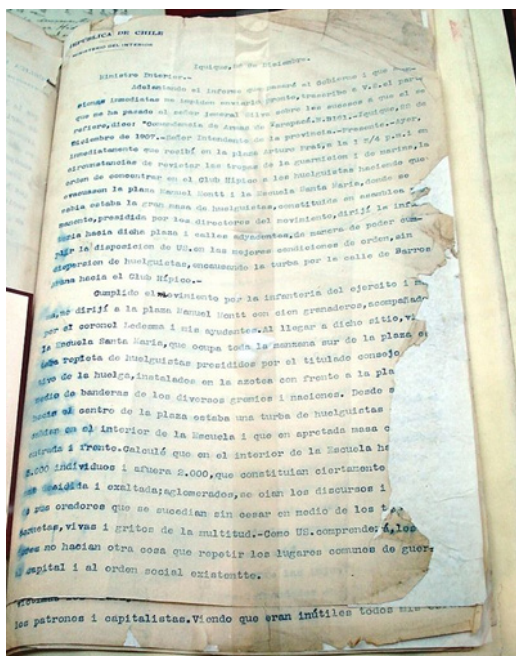 REPÚBLICA DE CHILE
MINISTERIO DEL INTERIOR
Iquique, de Diciembre.
Ministro Interior.-
Adelantando el informe que pasaré al Gobierno i que
inmediatas me impiden enviarlo pronto, transcribo a V.E. el par-
que me ha pasado el señor jeneral Silva sobre los sucesos a que el se
refiere, dice: "Comandancia de Armas de Tarapacá. N.
Diciembre de 1907.-Señor Intendente de la provincia.-Presente.-Ayer,
inmediatamente que recibí en la plaza Arturo Prat, a la 1 3/4 p.m. i en
circunstancias de revistar las tropas de la guarnicion i de marina, la
orden de concentrar en el Club Hípico a los huelguistas haciendo que
evacuasen la plaza Manuel Montt i la Escuela Santa Maria, donde se
sabia estaba la gran masa de huelguistas, constituidos en asamblea
manente, presidida por los directores del movimiento, dirijí la infan
tería hacia dicha plaza i calles adyacentes, de manera de poder cum-
plir la disposicion de US. en las mejores condiciones de orden, sin
dispersion de huelguistas, encausando la turba por la calle de Barros
Arana hacia el Club Hípico.-
Cumplido el movimiento por la infanteria del ejercito i m
me dirijí a la plaza Manuel Montt con cien granaderos, acompañado
por el coronel Ledesma i mis ayudantes. Al llegar a dicho sitio, vi
la Escuela Santa Maria, que ocupa toda la manzana sur de la plaza
repleta de huelguistas presididos por el titulado consejo
tivo de la huelga, instalados en la azotea con frente a la pla
medio de banderas de los diversos gremios i naciones. Desde
hacia el centro de la plaza estaba una turba de huelguistas
en el interior de la Escuela i que en apretada masa c
entrada i frente. Calculé que en el interior de la Escuela ha
.000 individuos i afuera 2.000, que constituian ciertamente
decidida i exaltada; aglomerados, se oian los discursos i
sus oradores que se sucedian sin cesar en medio de los t
cornetas, vivas i gritos de la multitud.-Como US. comprenderá, los
no hacian otra cosa que repetir los lugares comunes de guer-
capital i al orden social existentte.
los patrones i capitalistas. Viendo que eran inútiles todos mis